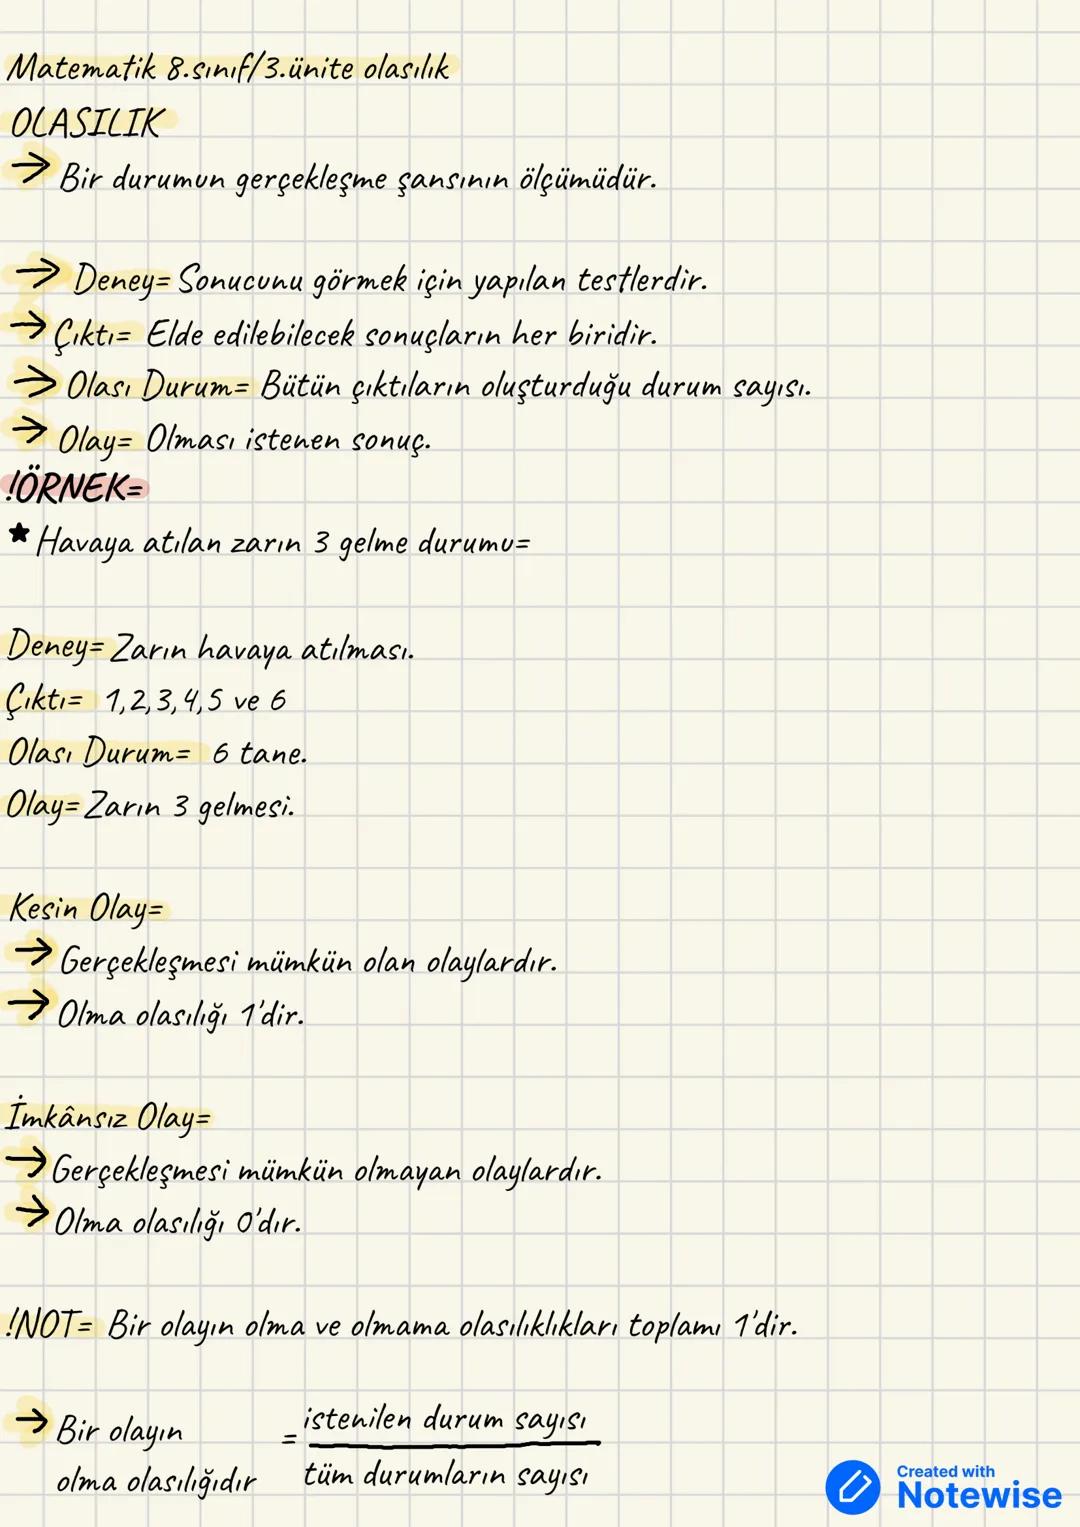 Matematik 8.sınıf/3.ünite olasılık
OLASILIK
→ Bir durumun gerçekleşme şansının ölçümüdür.
→ Deney= Sonucunu görmek için yapılan testlerdir.
→ Çıktı= Elde edilebilecek sonuçların her biridir.
→ Olası Durum= Bütün çıktıların oluşturduğu durum sayısı.
→ Olay= Olması istenen sonuç.
!ÖRNEK=
★ Havaya atılan zarın 3 gelme durumu=
Deney= Zarın havaya atılması.
Çıktı= 1,2,3,4,5 ve 6
Olası Durum= 6 tane.
Olay= Zarın 3 gelmesi.
Kesin Olay=
→ Gerçekleşmesi mümkün olan olaylardır.
→ Olma olasılığı 1'dir.
İmkânsız Olay=
→ Gerçekleşmesi mümkün olmayan olaylardır.
→ Olma olasılığı 0'dır.
!NOT= Bir olayın olma ve olmama olasılıklıkları toplamı 1'dir.
→ Bir olayın
olma olasılığıdır
= istenilen durum sayısı
tüm durumların sayısı
Created with
Notewise